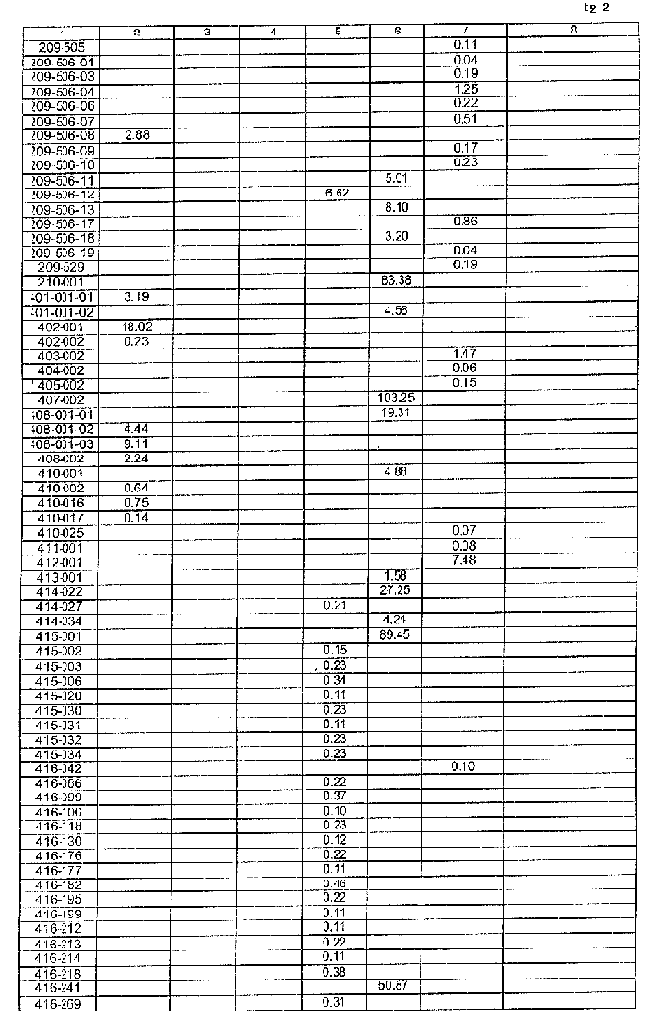 tg 2
1 2 3 4 5 6 7 8
209-505 0.11
209-506-01 0.04
209-506-03 0.19
209-506-04 1.25
209-506-06 0.22
209-506-07 0.51
209-506-08 2.88
209-506-09 0.17
209-506-10 0.23
209-506-11 5.01
209-506-12 6.62
209-506-13 8.10
209-506-17 0.86
209-506-18 3.20
209-506-19 0.04
209-529 0.19
210-001 83.38
401-001-01 3.19
401-001-02 4.56
402-001 18.02
402-002 0.23
403-002 1.47
404-002 0.06
405-002 0.15
407-002 103.25
408-001-01 19.31
408-001-02 4.44
408-001-03 9.11
408-002 2.24
410-001 4.88
410-002 0.64
410-016 0.75
410-017 0.14
410-025 0.07
411-001 0.08
412-001 7.48
413-001 1.58
414-022 27.25
414-027 0.21
414-034 4.24
415-001 89.45
415-002 0.15
415-003 0.23
415-006 0.34
415-020 0.11
415-030 0.23
415-031 0.11
415-032 0.23
415-034 0.23
416-042 0.10
416-066 0.22
416-099 0.37
416-106 0.10
416-118 0.23
416-130 0.12
416-176 0.22
416-177 0.11
416-182 0.46
416-195 0.22
416-199 0.11
416-212 0.11
416-213 0.22
416-214 0.11
416-218 0.38
416-241 50.87
416-269 0.31